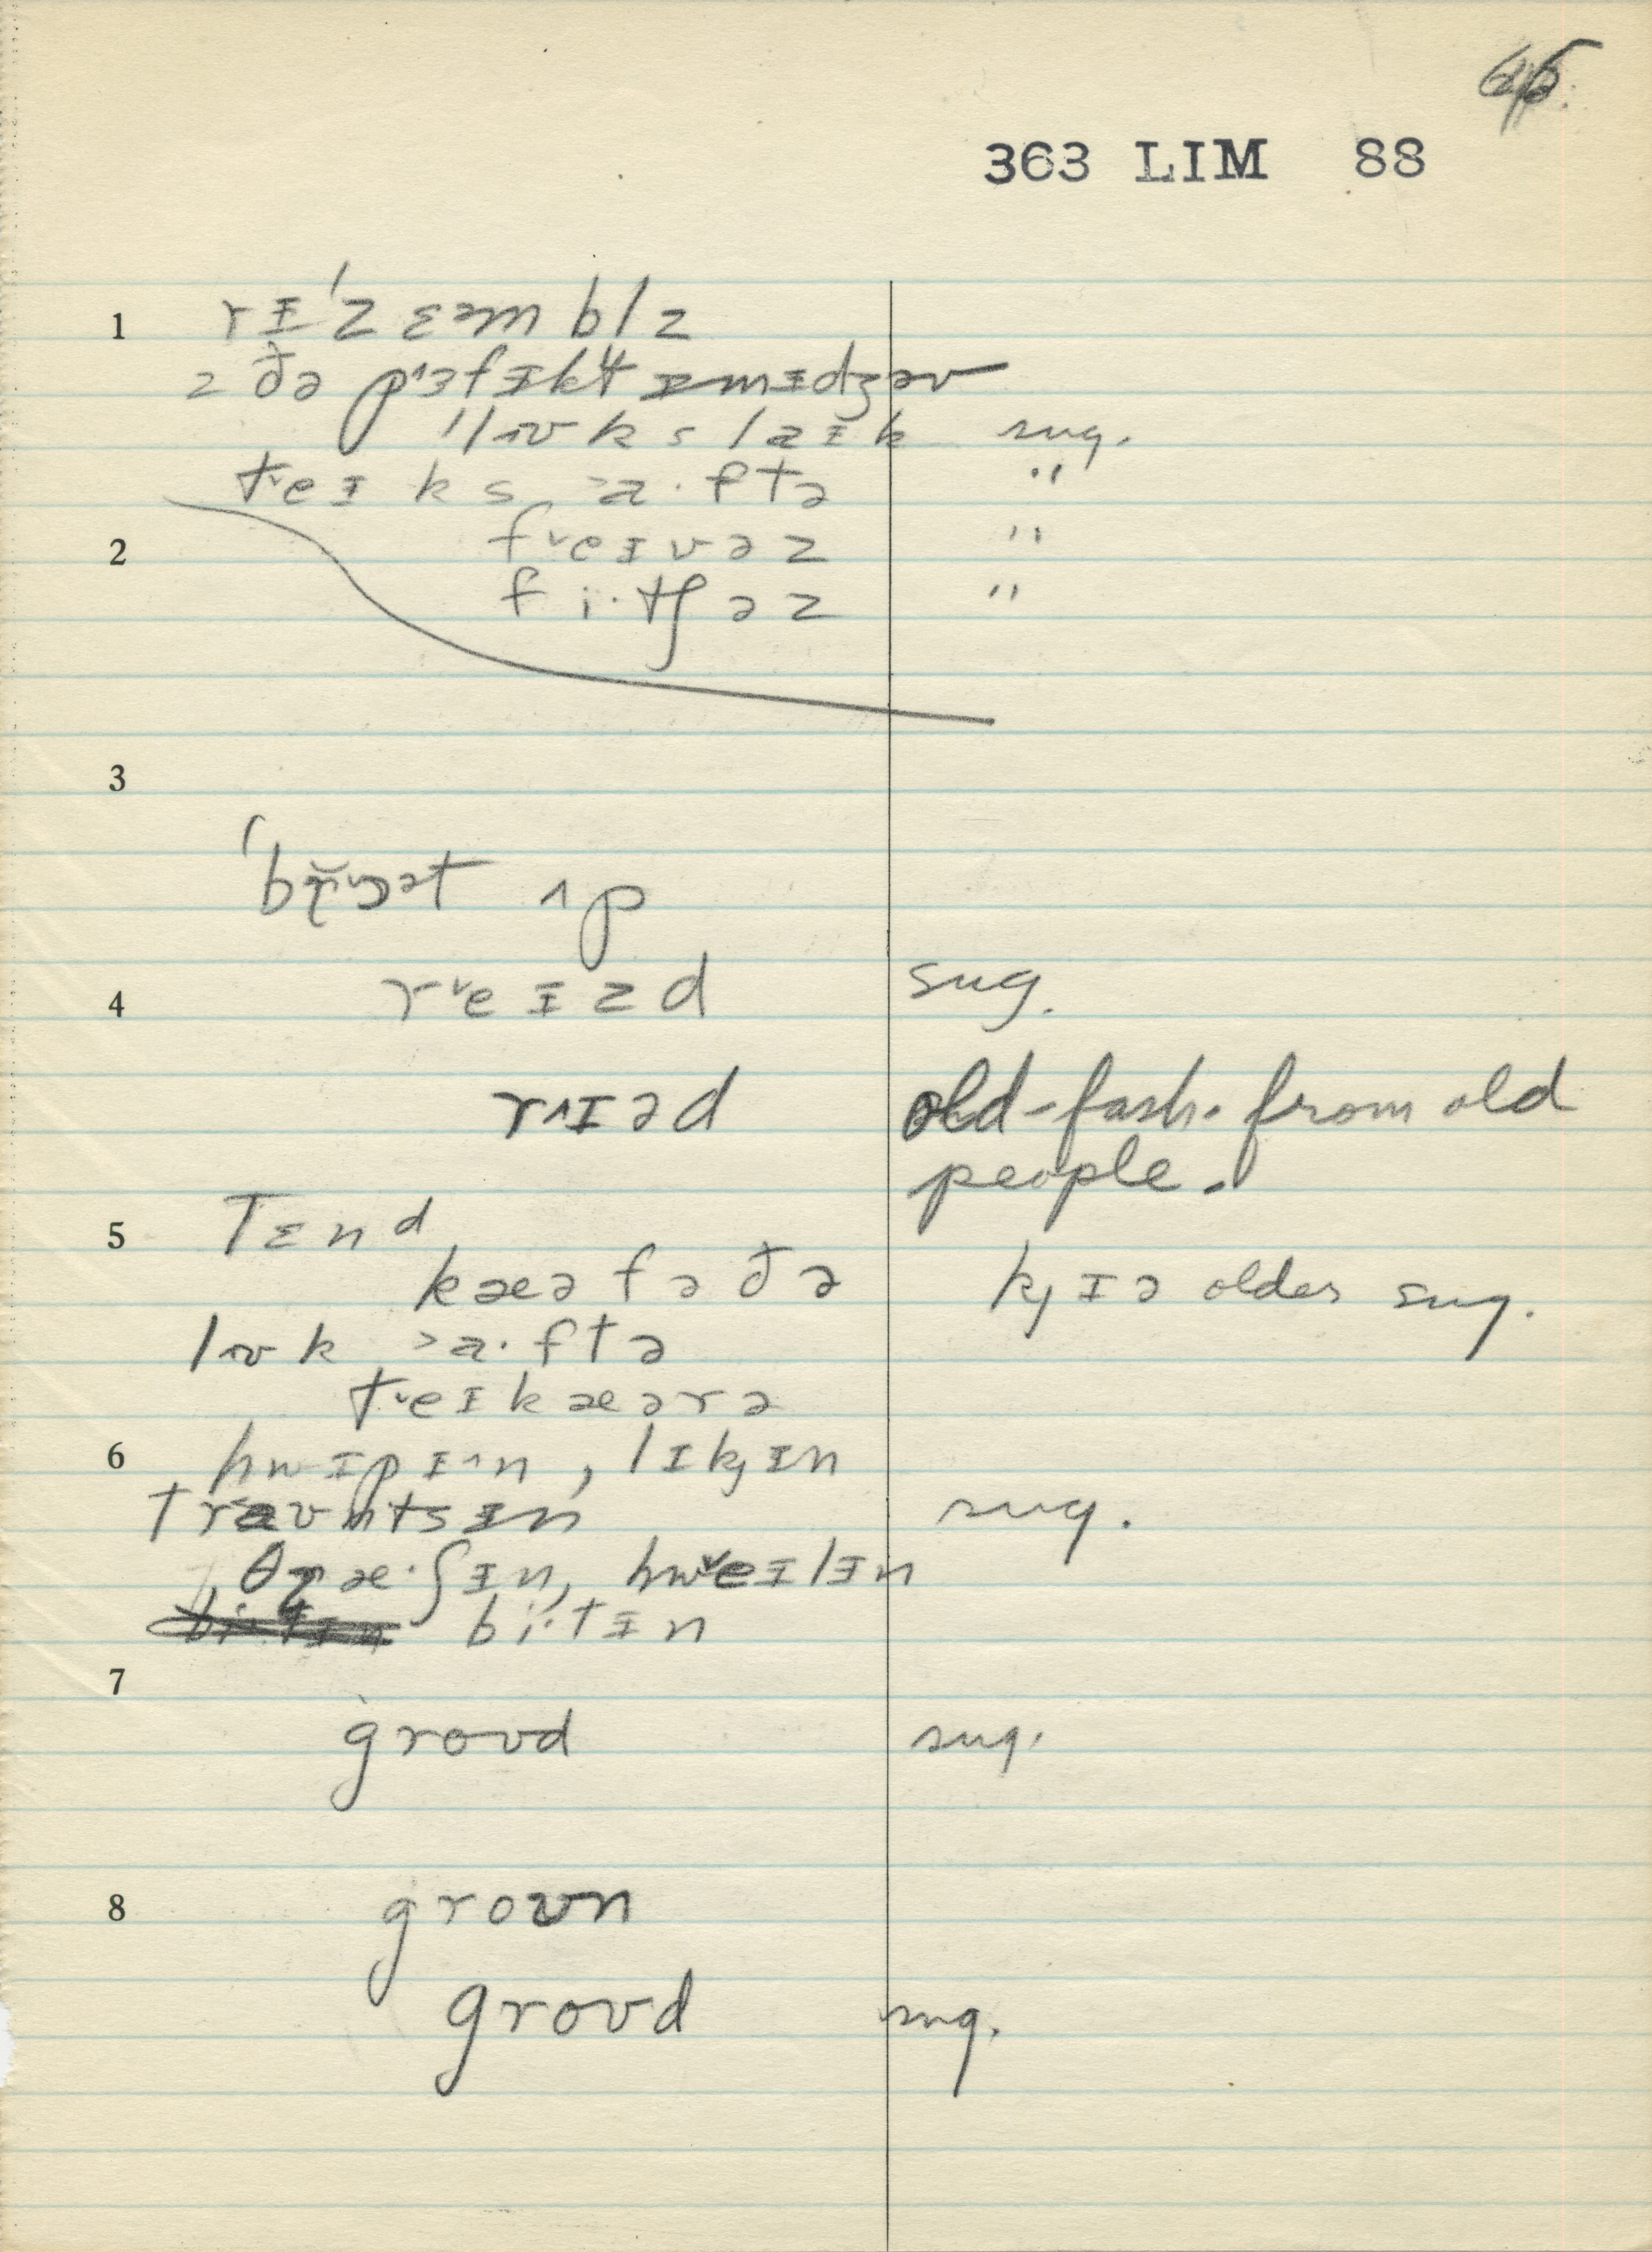 363 LIM 88
1 rɪ̵ˈzɛəmblz
z ðə pɜfɪ̵kt ɪ̵mɪ̵dʒəv
ˈlʊks laɪ̵k sug.
t˅eɪks ˃a·ftə "
2 f˅eɪvəz "
fi·tʃəz "
3
ˈbr̥̆˅ɔət ʌp
4 r˅eɪzd sug.
r˄ɪəd old-fash. from old
people.
5 Tɛnd
kæəfəðə k̡ɪə older sug.
lʊk ˃a·ftə
t˅eɪkæərə
6 hwɪpɪ˄n, lɪk̡ɪn
traʊntsɪ̵n sug.
, θræ·ʃɪ̵n, hw˅eɪlɪ̵n
bi·tɪ̵n
7
groʊd sug.
8 groʊn
groʊd sug.